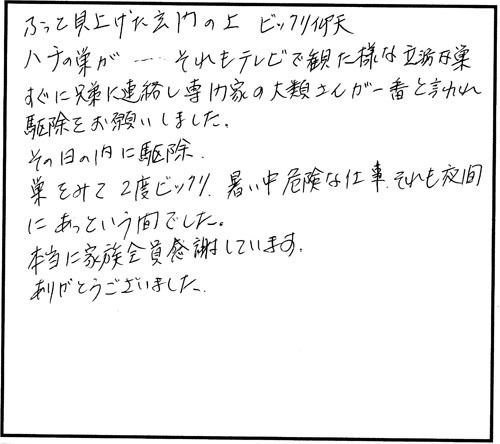 ふっと見上げた玄関の上 ビックリ仰天
ハチの巣が…… それもテレビで観た様な立派な巣
すぐに兄弟に連絡し専門家の大類さんが一番と言われ
駆除をお願いしました。
その日の内に駆除.
巣をみて2度ビックリ. 暑い中危険な仕事.それも夜間
にあっという間でした。
本当に家族全員感謝しています.
ありがとうございました.